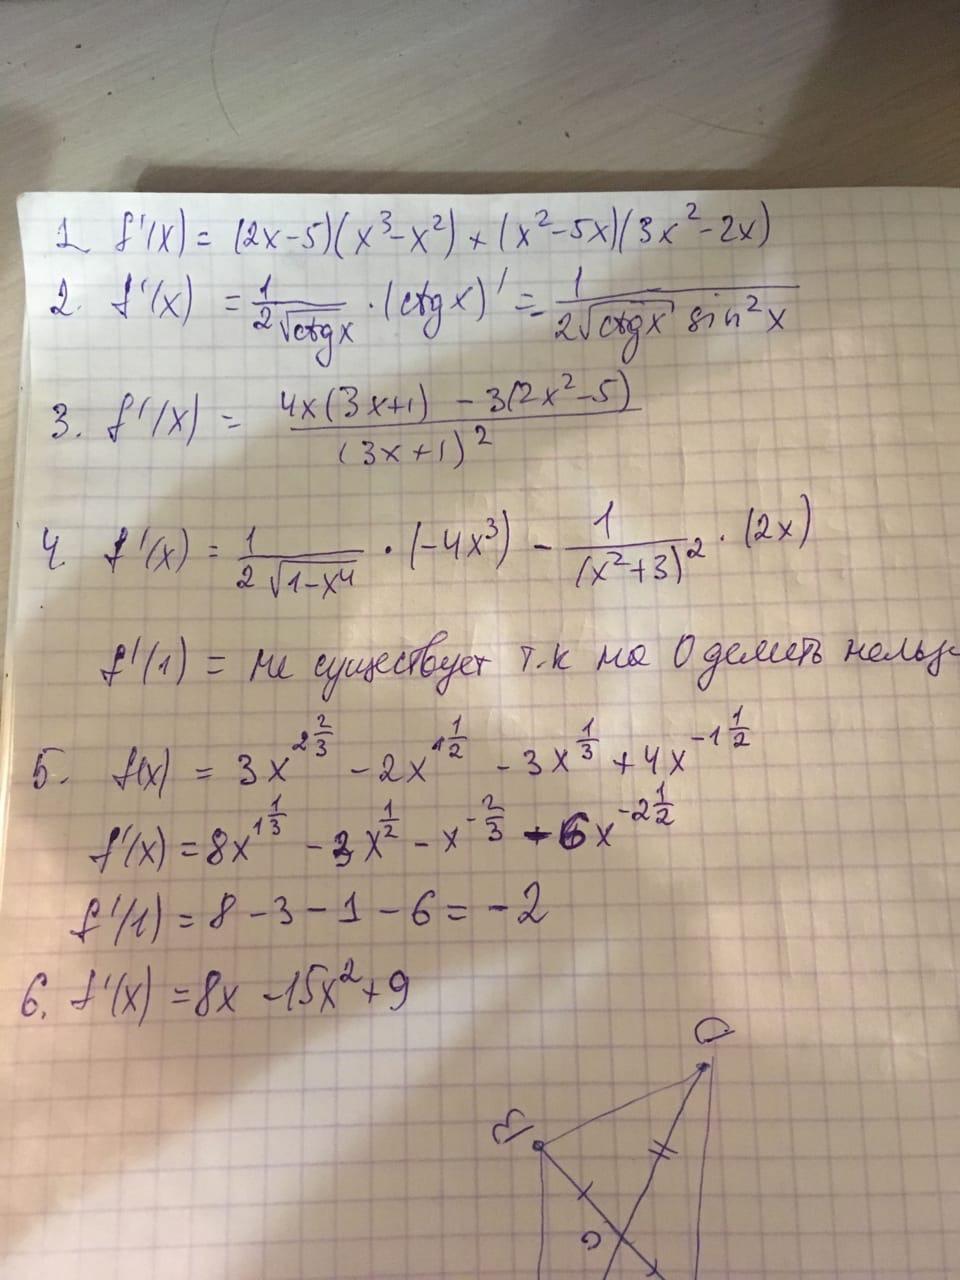 1. f'(x) = (2x-5)(x³-x²) + (x²-5x)(3x²-2x)
2. f'(x) = 1/(2√(ctgx)) · (ctgx)' = - 1/(2√(ctgx) sin²x)
3. f'(x) = (4x(3x+1) - 3(2x²-5))/(3x+1)²
4. f'(x) = 1/(2√(1-x⁴)) · (-4x³) - 1/(x²+3)² · (2x)
f'(1) = не существует т.к на 0 делить нельз
5. f(x) = 3x^(2 2/3) - 2x^(1 1/2) - 3x^(1/3) + 4x^(-1 1/2)
f'(x) = 8x^(1 1/3) - 3x^(1/2) - x^(-2/3) - 6x^(-2 1/2)
f'(1) = 8 - 3 - 1 - 6 = -2
6. f'(x) = 8x - 15x² + 9
D
B